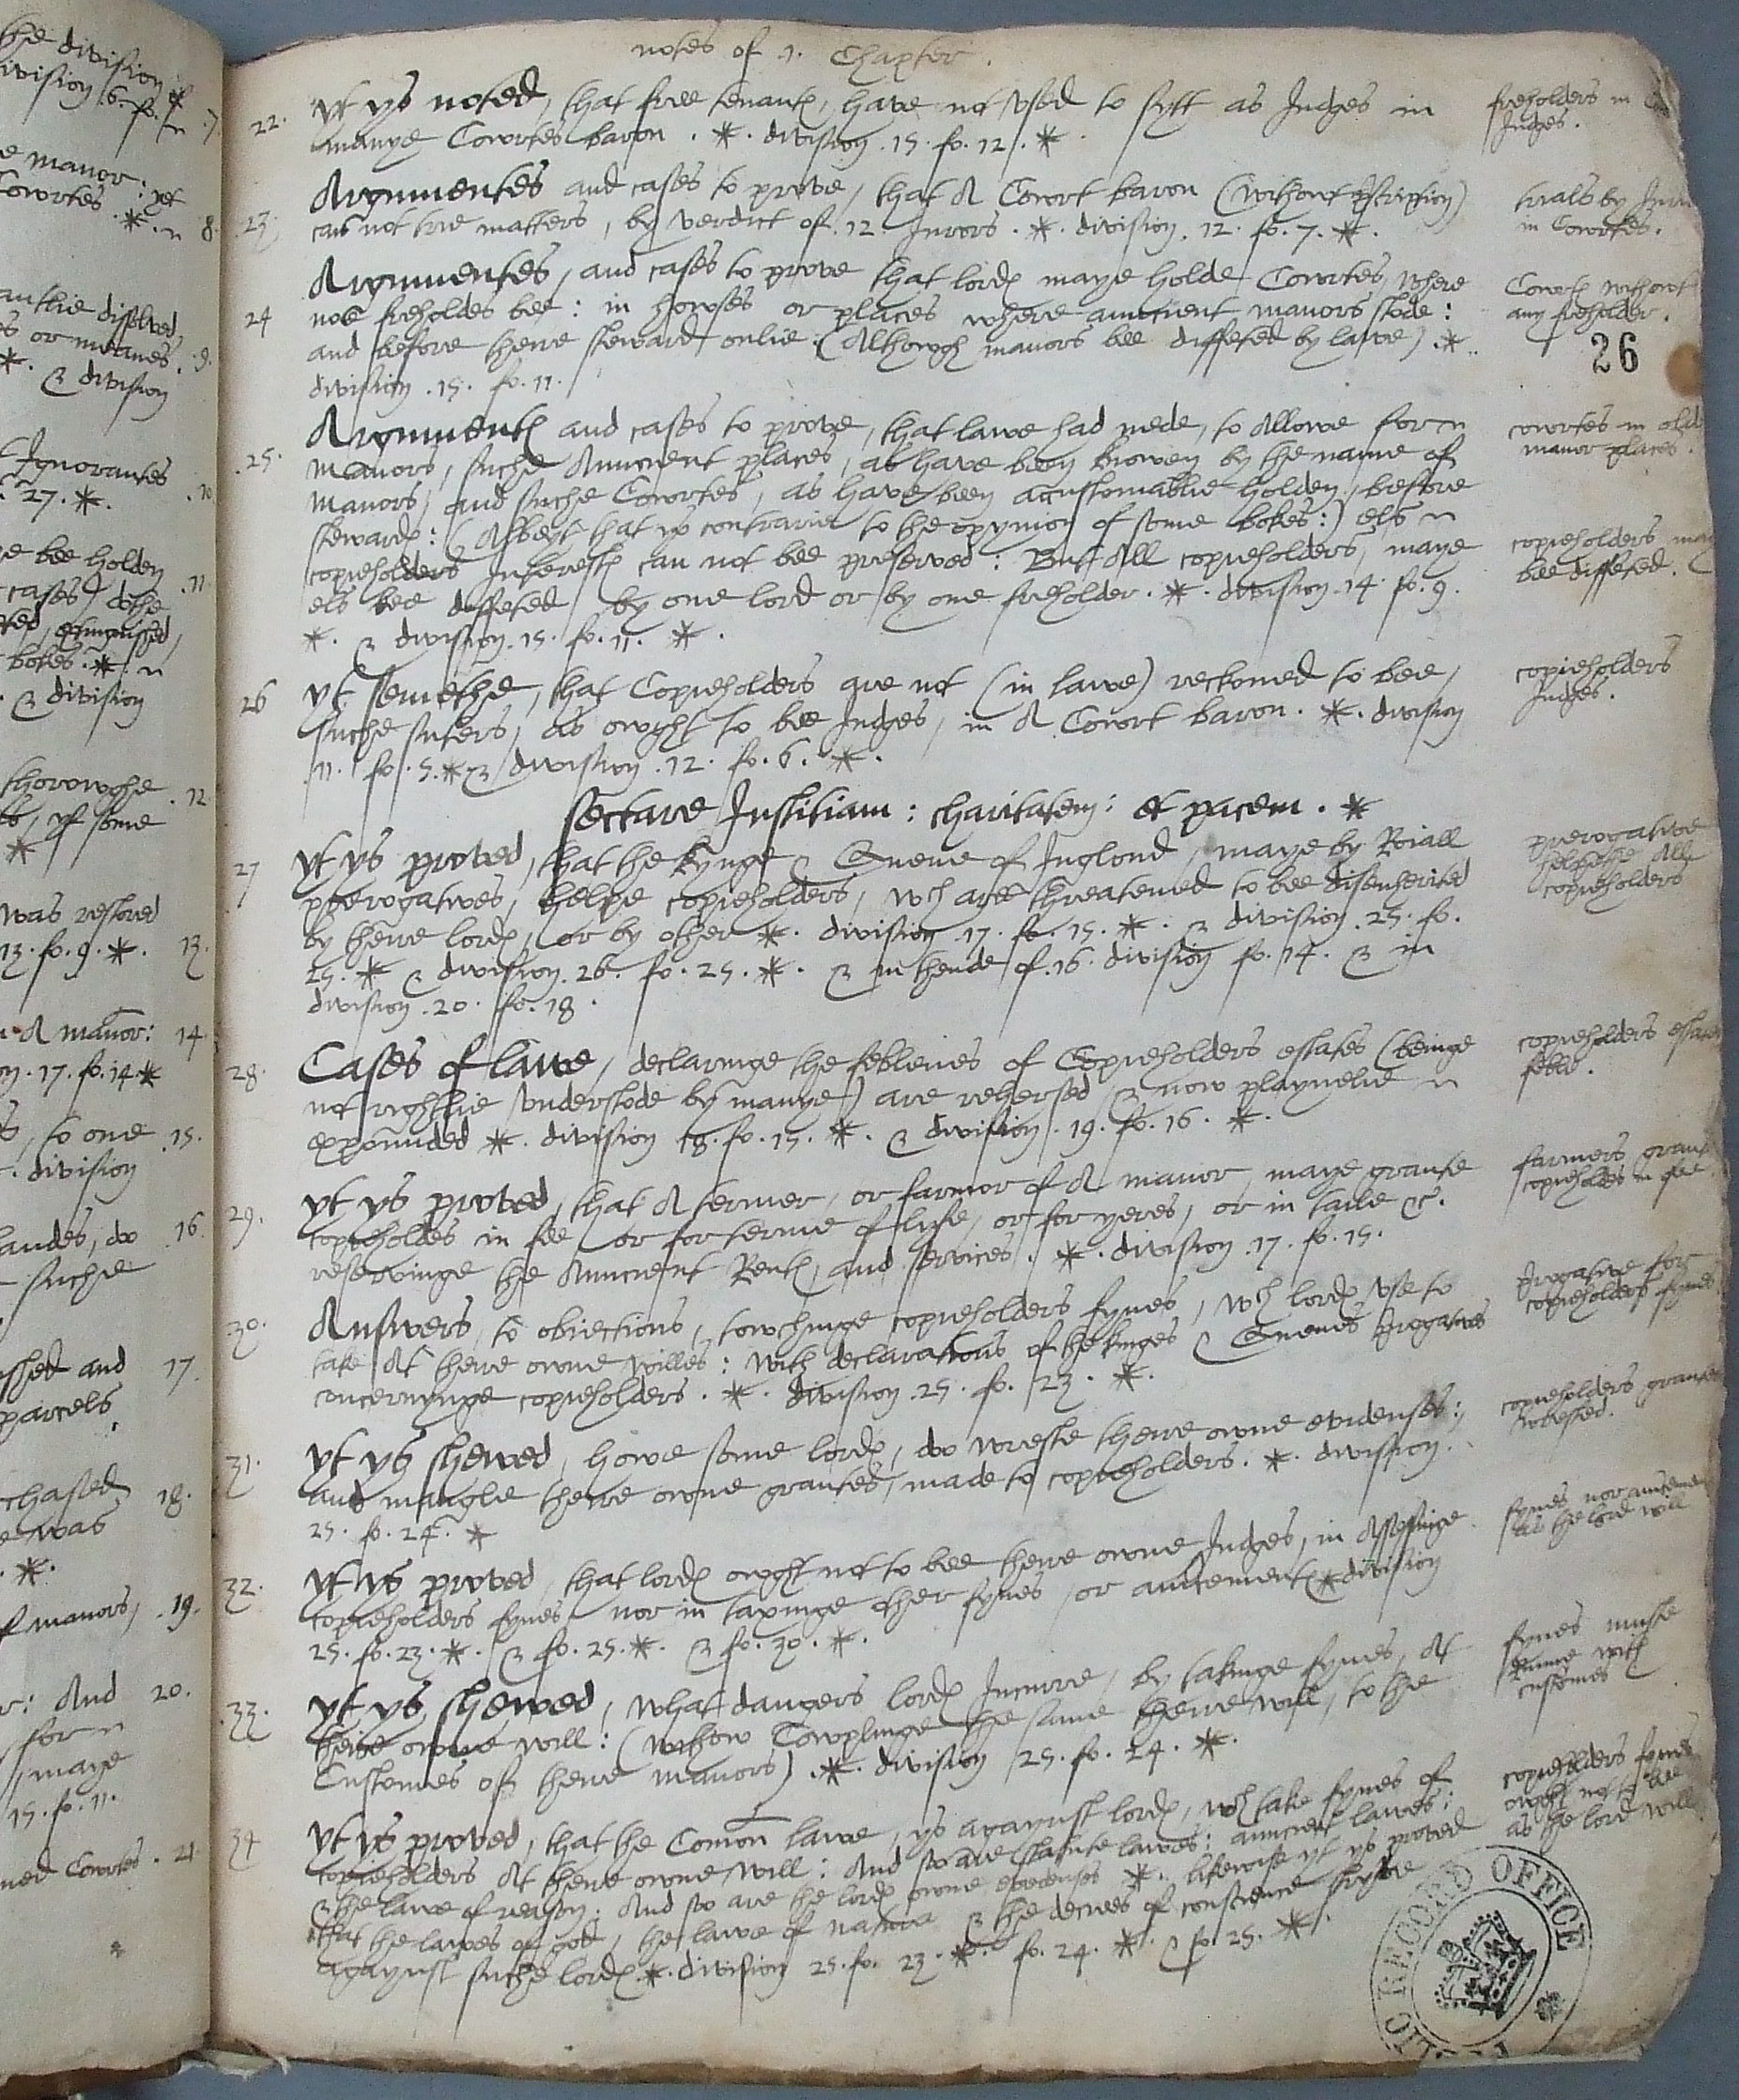 notes of .1. Chapter.
22. yt ys noted, that free tenant, have not vsed to sytt as Judges in
manye Cowrtes baron . * . division . 15 . fo . 12 . *
freholders in
Judges .
Argumentes and cases to prove, that A Cowrt baron (without
23. can not trie matters, by verdict of . 12 . Jurors . * . division . 12 . fo . 7 . * .
trials by
in Cowrtes .
Argumentes, and cases to prove that lord maye holde Cowrtes, where
24 noe freholdes bee : in howses or places where auncient manors stode :
and before there steward onlie . (Althowgh manors bee diffeted by lawe) . *
division . 15 . fo . 11 .
Cowrt without
any freholder .
26
Argument and cases to prove, that lawe had nede, to Allowe for
25. Manors, suche Auncient places, as have been knowen by the name of
Manors, and suche Cowrtes, as have been accustomablie holden, before
steward : (Albeyt that ys contrarie to the opynion of some bokes :) els
copieholders Interest can not bee preserved : But All copieholders, maye
els bee diffeted by one lord or by one freholder . * . division . 14 . fo . 9 .
* . & division . 15 . fo . 11 . * .
cowrtes in olde
manor places .
copieholders may
bee diffeted .
26 yt semethe, that Copieholders are not (in lawe) reckoned to bee,
suche suters, as owght to bee Judges, in A Cowrt baron . * . division
. 11 . fo . 5 . * & division . 12 . fo . 6 . * .
copieholders
Judges .
Sectare Justitiam : charitatem : et pacem . *
27 yt ys proved, that the Kynge & Quene of Inglond, maye by Roiall
prerogatives, helpe copieholders, wch are threatened to bee disenherited
by there lord, or by other * . division . 17 . fo . 15 . * . & division . 25 . fo .
25 . * & division . 26 . fo . 25 . * . & in thende of . 16 . division fo . 14 . & in
division . 20 . fo . 18 .
prerogative
helpethe All
copieholders
28. Cases of lawe, declaringe the feblenes of Copieholders estates (beinge
not rightlie vnderstode by manye) are rehersed & now playnelie
expounded * . division 18 . fo . 15 . * . & division . 19 . fo . 16 . * .
copieholders
feble .
29. yt ys proved, that A termer, or farmor of A manor, maye graunte
copieholdes in fee or for terme of lyfe, or for yeres, or in taile &c.
reservinge the Auncient Rent, and services . * . division . 17 . fo . 15 .
farmers graunt
copieholdes in fee
30. Answers, to obiections, towchinge copieholders fynes, wch lord vse to
take At there owne willes : with declarations of the kinges & Quenes progatives
concernynge copieholders . * . division . 25 . fo . 23 . * .
progative for
copieholders fynes
31. yt ys shewed, howe some lord, do wreste there owne evidenses :
and mangle there owne grauntes, made to copieholders . * . division .
25 . fo . 24 . *
copieholders graunte
wrested .
32. yt ys proved, that lord owght not to bee there owne Judges, in Assessinge
copieholders fynes nor in taxinge other fynes, or amcement * division
25 . fo . 23 . * . & fo . 25 . * . & fo . 30 . * .
fynes nor
as the lord will
33. yt ys shewed, what dangers lord Incurre, by takinge fynes, At
there owne will : (withow Cowplinge the same there will, to the
Customes of there manors) . * . division 25 . fo . 24 . * .
fynes muste
Runne with
customes
34 yt ys proved, that the Comon lawe, ys agaynst lord, wch take fynes of
copieholders At there owne will : And so are statute lawes : auncient lawes :
& the lawe of reason : And so are the lord owne evidenses * . likewise yt ys proved
that the lawes of god, the lawe of nature & the decrees of conscience
agaynst suche lord * . division 25 . fo . 23 . * . fo . 24 . * . & fo . 25 . * .
copieholders fynes
owght not to bee
as the lord will
RECORD OFFICE